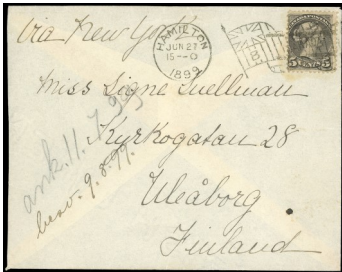 via New York
HAMILTON
JUN 27
15—0
1899
5 CENTS 5
Miss Signe Snellman
Kyrkogatan 28
Uleåborg
Finland
ank. 11.7.99
besv. 9.8.99.